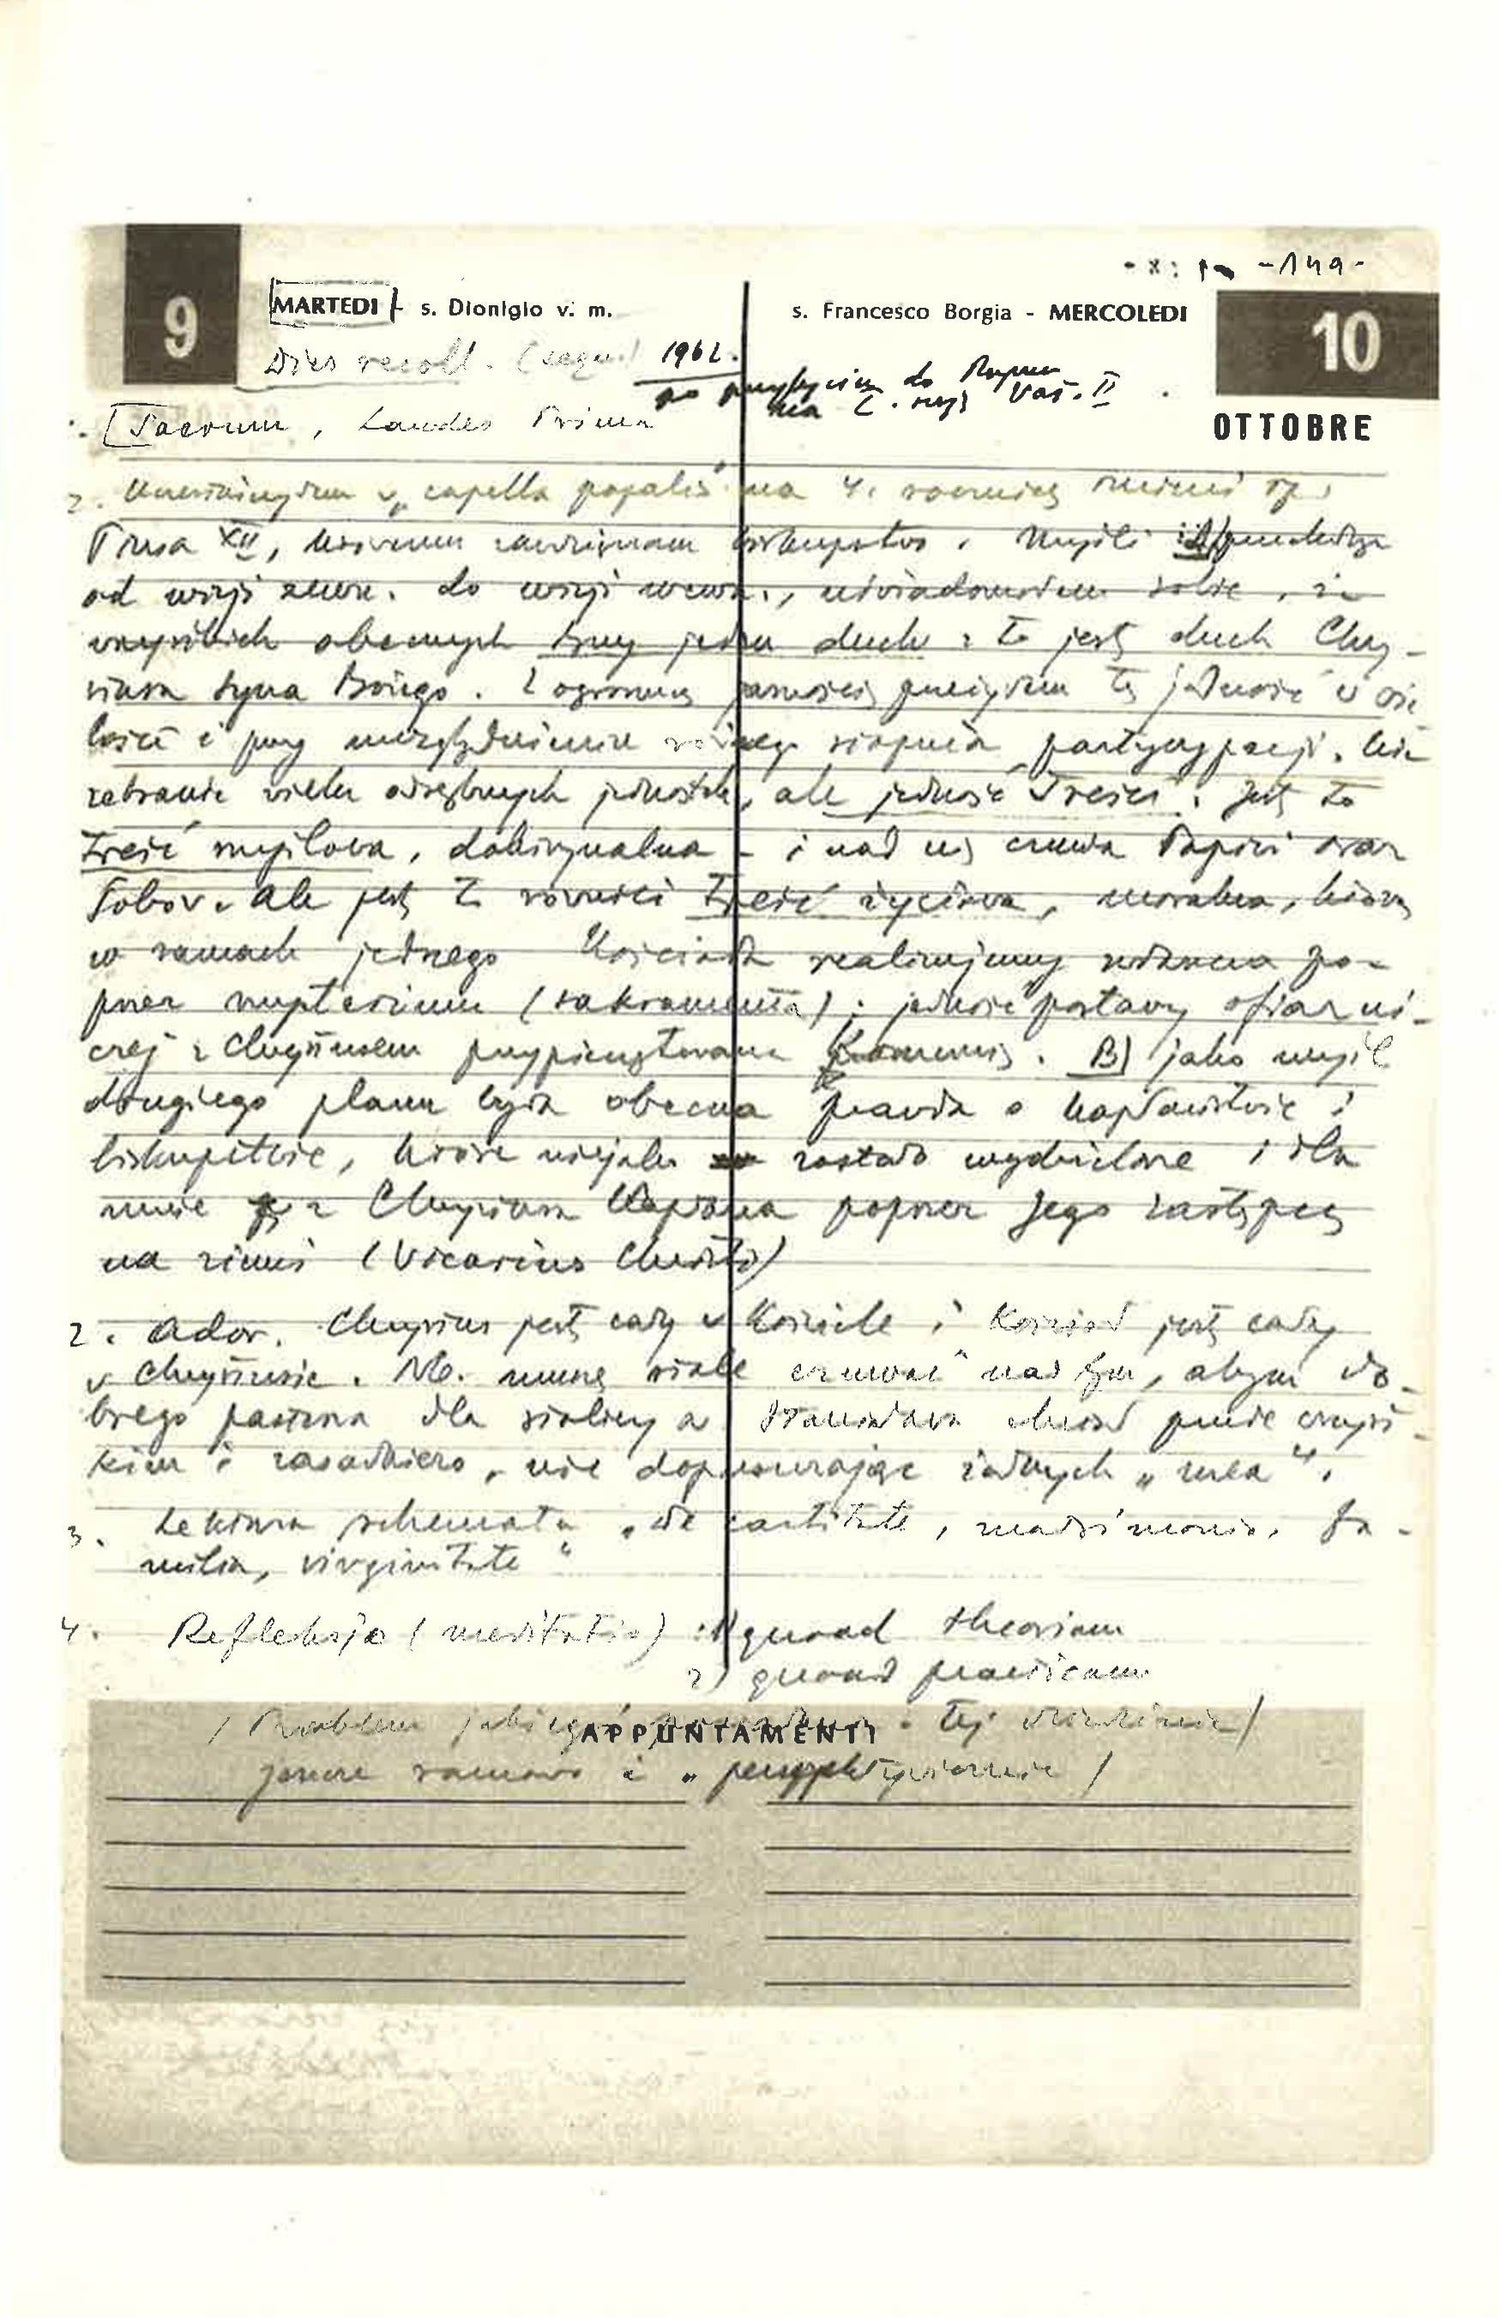 -149-
9 MARTEDI - s. Dionigio v. m.
s. Francesco Borgia - MERCOLEDI 10
OTTOBRE
Dies recoll. 1962.
po przybyciu do Rzymu
na Vat. II
[Sacrum, Laudes Prima
2. Uczestniczyłem w „capella papalis" na 4. rocznicę śmierci
Piusa XII, któremu zawdzięczam biskupstwo. Myśli: A/ przechodząc
od wizji zewn. do wizji wewn., uświadomiłem sobie, że
wszystkich obecnych łączy jeden duch: to jest duch Chry-
stusa Syna Bożego. Z ogromną jasnością przeżyłem tę jedność w wie-
lości i przy uwzględnieniu różnego stopnia partycypacji. Nie
zebranie wielu odrębnych jednostek, ale jedność treści. Jest to
treść myślowa, doktrynalna - i nad nią czuwa Papież oraz
Sobór. Ale jest to również treść życiowa, moralna, którą
w ramach jednego Kościoła realizujemy zwłaszcza po-
przez mysterium (sakramenta); jedność postawy ofiarni-
czej z Chrystusem przypieczętowana Komunią. B) jako myśl
drugiego planu była obecna prawda o kapłaństwie i
biskupstwie, które niejako zostało wydzielone i dla
mnie z Chrystusa Kapłana poprzez Jego zastępcę
na ziemi (Vicarius Christi)
2. Ador. Chrystus jest cały w Kościele i Kościół jest cały
w Chrystusie. NB. muszę stale czuwać nad tym, abym do-
brego pasterza dla stolicy św. Stanisława chciał przede wszyst-
kim i zasadniczo, nie dopuszczając żadnych „mea".
3. Lektura schematu „de castitate, matrimonio, fa-
milia, virginitate"
4. Refleksja (meditatio): 1) quoad theoriam
2) quoad practicam
/ Problem tej dziedzinie/
APPUNTAMENTI